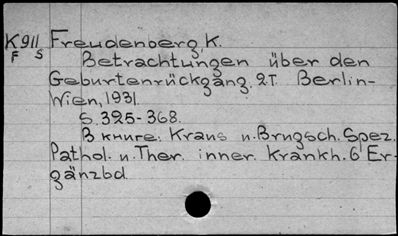 K911 Freudenberg, K.
F S
Betrachtungen über den
Geburtenrückgang. 2T. Berlin-
Wien, 1931.
S. 325-368.
В книге: Kraus u. Brugsch. Spez.
Pathol. u. Ther. inner. Krankh. 6 Er-
gänzbd.